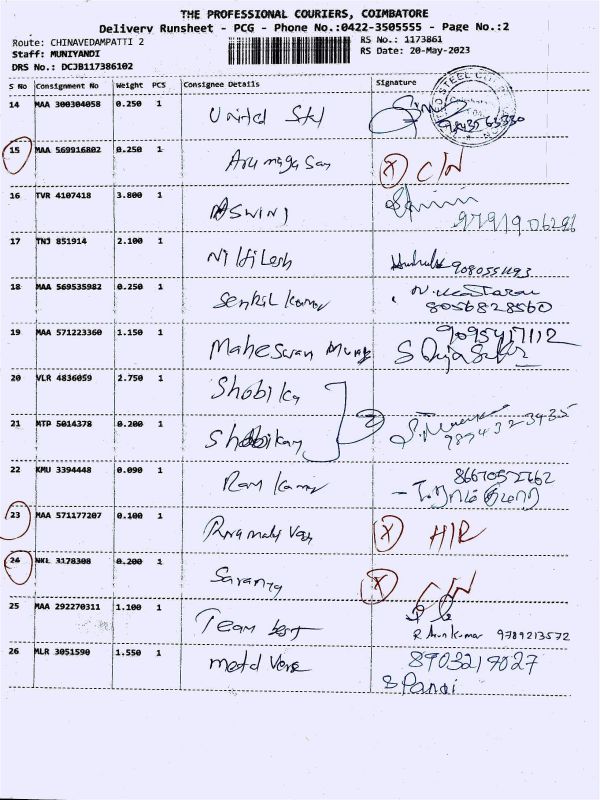 THE PROFESSIONAL COURIERS, COIMBATORE
Delivery Runsheet - PCG - Phone No.:0422-3505555 - Page No.:2
Route: CHINAVEDAMPATTI 2 RS No.: 1173861
Staff: MUNIYANDI RS Date: 20-May-2023
DRS No.: DCJB117386102
S No Consignment No Weight PCS Consignee Details Signature
14 MAA 300304058 0.250 1 United Stel
15 MAA 569916802 0.250 1 Arumagasan X C/N
16 TVR 4107418 3.800 1 ASWINI
9791906296
17 TNJ 851914 2.100 1 Nikilesh 9080551193
18 MAA 569535982 0.250 1 Senkil Kumar
8056828560
19 MAA 571223360 1.150 1 Mahesaran 9095417112
20 VLR 4836059 2.750 1 Shobika
21 MTP 5014378 0.200 1 Shobikan 9894323435
22 KMU 3394448 0.090 1 Ram Kumar
23 MAA 571177207 0.100 1 X H/R
24 NKL 3178308 0.200 1 Saranya X C/N
25 MAA 292270311 1.100 1 Team best
R Arun Kumar 9789213572
26 MLR 3051590 1.550 1 metd Vone 8903219027
S Pandi